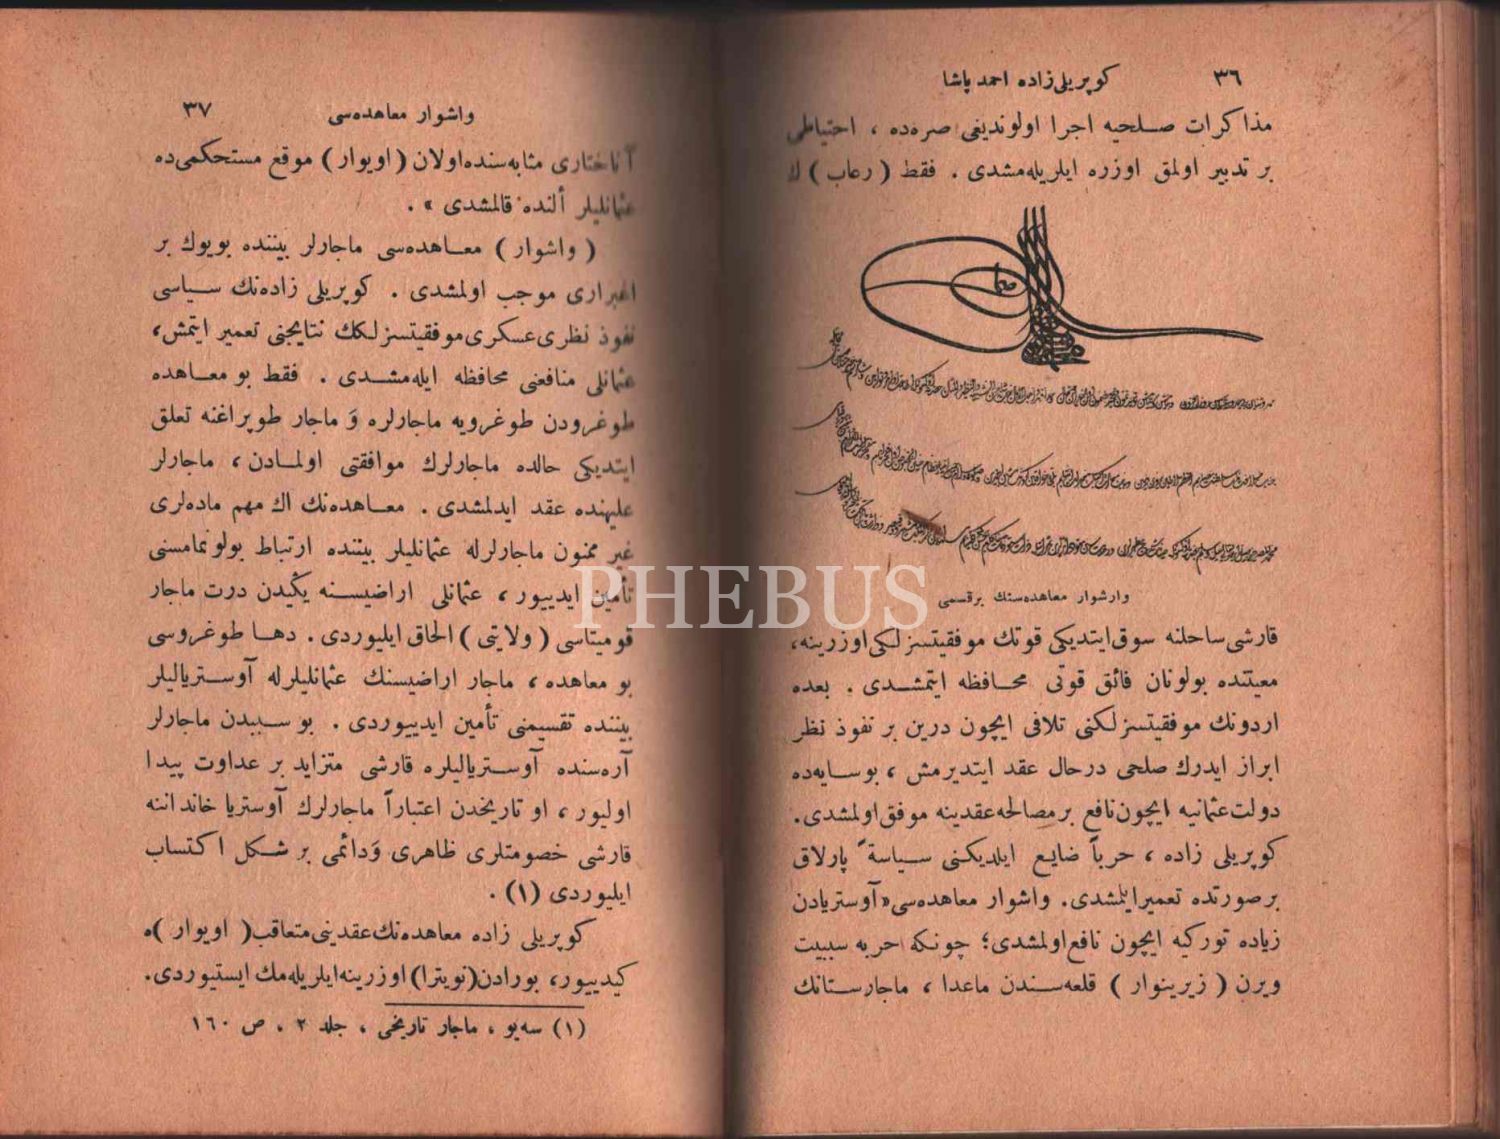 ٣٦
كوپريلى زاده احمد پاشا
مذاكرات صلحيه اجرا اولونديغى صره‌ده ، احتياطى
بر تدبير اولمق اوزره ايلريله‌مشدى . فقط ( رعاب ) ك
وارشوار معاهده‌سنك بر قسمى
قارشى ساحلنه سوق ايتديكى قوتك موفقيتسزلكى اوزرينه،
معيتنده بولونان فائق قوتى محافظه ايتمشدى . بعده
اردونك موفقيتسزلكنى تلافى ايچون درين بر نفوذ نظر
ابراز ايدرك صلحى درحال عقد ايتديرمش ، بو سايه‌ده
دولت عثمانيه ايچون نافع بر مصالحه عقدينه موفق اولمشدى.
كوپريلى زاده ، حرباً ضايع ايلديكنى سياسةً پارلاق
بر صورتده تعمير ايلمشدى. واشوار معاهده‌سى «آوستريادن
زياده توركيه ايچون نافع اولمشدى؛ چونكه حربه سببيت
ويرن ( زيرينوار ) قلعه‌سندن ماعدا ، ماجارستانك
٣٧
واشوار معاهده‌سى
آناختارى مثابه‌سنده اولان ( اويوار ) موقع مستحكمى ده
عثمانليلر ألنده قالمشدى » .
( واشوار ) معاهده‌سى ماجارلر بيننده بويوك بر
اغبرارى موجب اولمشدى . كوپريلى زاده‌نك سياسى
نفوذ نظرى عسكرى موفقيتسزلكك نتايجنى تعمير ايتمش،
عثمانلى منافعنى محافظه ايله‌مشدى . فقط بو معاهده
طوغرودن طوغرويه ماجارلره وَ ماجار طوپراغنه تعلق
ايتديكى حالده ماجارلرك موافقتى اولمادن ، ماجارلر
عليهنده عقد ايدلمشدى . معاهده‌نك اك مهم ماده‌لرى
غير ممنون ماجارلرله عثمانليلر بيننده ارتباط بولونمامسنى
تأمين ايدييور ، عثمانلى اراضيسنه يڭيدن درت ماجار
قوميتاسى ( ولايتى ) الحاق ايليوردى . دها طوغروسى
بو معاهده ، ماجار اراضيسنك عثمانليلرله آوستريالیلر
بيننده تقسيمنى تأمين ايدييوردى . بو سببدن ماجارلر
آره‌سنده آوستريالیلره قارشى متزايد بر عداوت پيدا
اوليور ، او تاريخدن اعتباراً ماجارلرك آوستريا خانداننه
قارشى خصومتلرى ظاهرى وَ دائمى بر شكل اكتساب
ايليوردى (١) .
كوپريلى زاده معاهده‌نك عقدينى متعاقب ( اويوار ) ه
كيدييور، بورادن (نويترا) اوزرينه ايلريله‌مك ايستيوردى.
(١) سه‌يو ، ماجار تاريخى ، جلد ٢ ، ص ١٦٠
PHEBUS